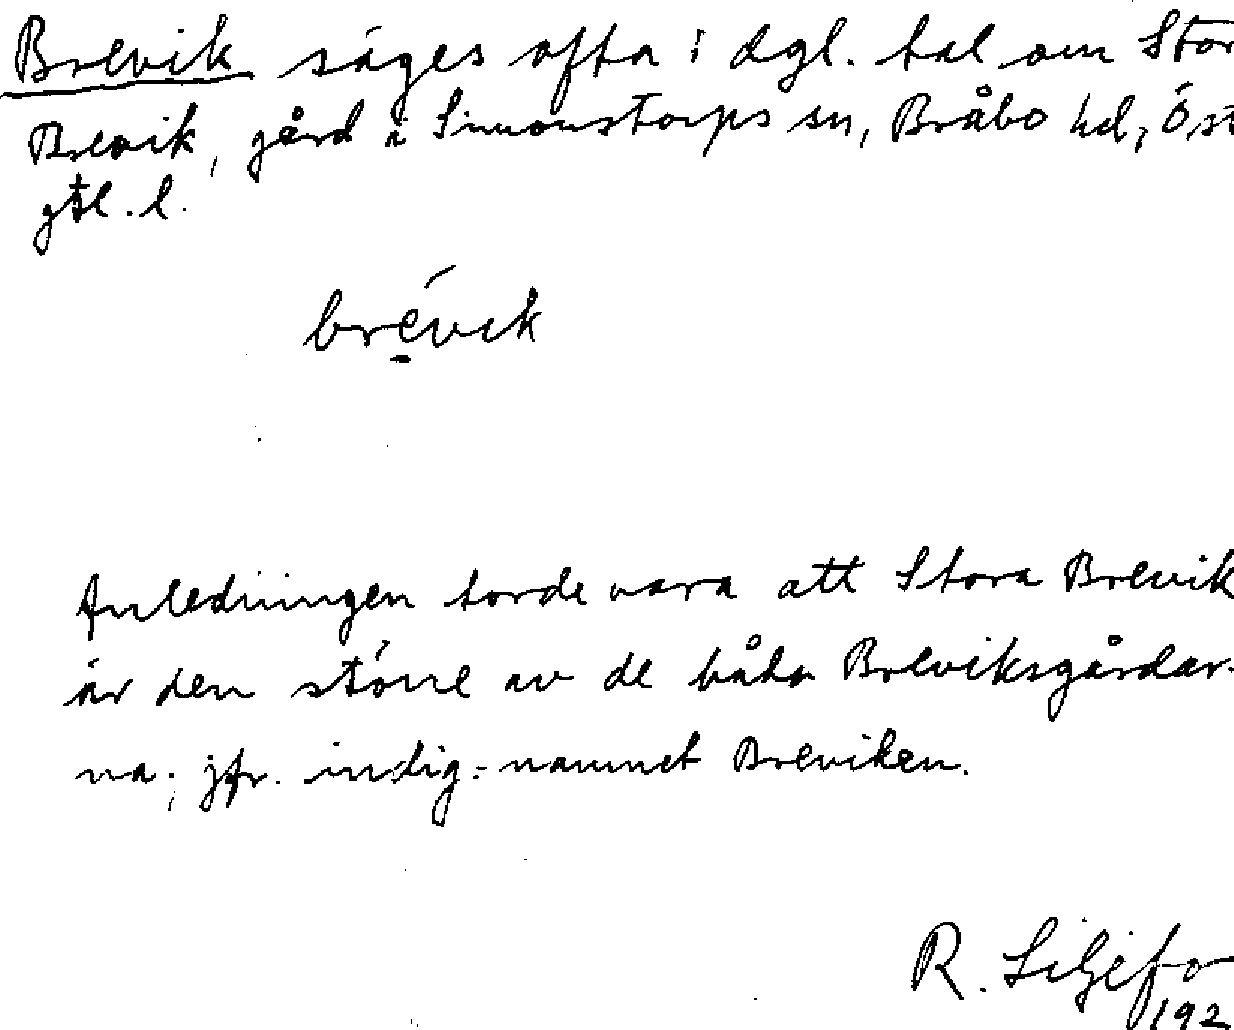 Brevik säges ofta i dgl. tal om Stor
Brevik, gård i Simonstorps sn, Bråbo hd, Öst
gtl. l.
brévik
Anledningen torde vara att Stora Brevik
är den större av de båda Breviksgårdar-
na; jfr. indig.-namnet Breviken.
R. Liljefo
192